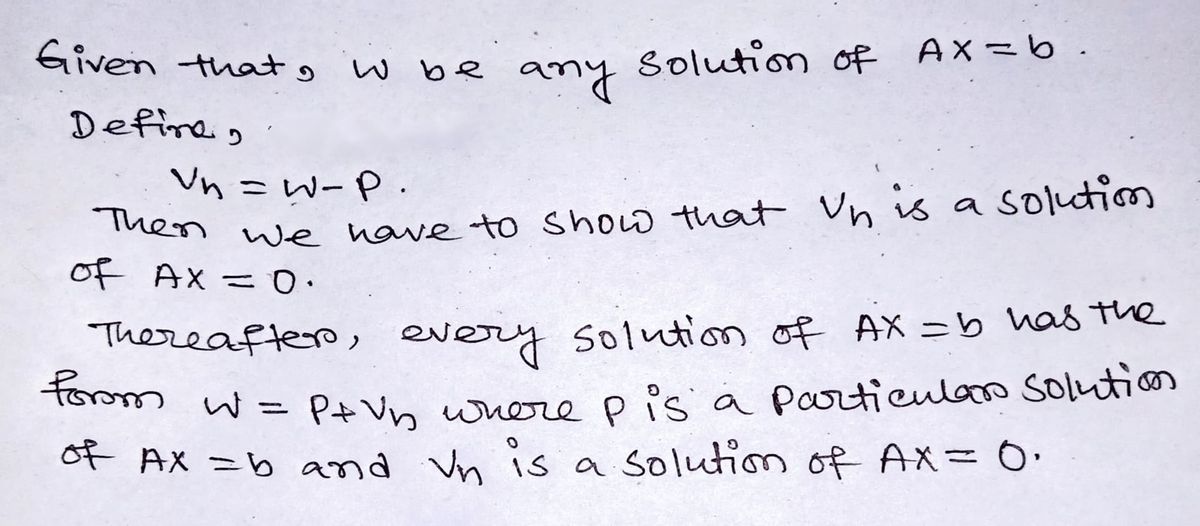 Given that, w be any solution of AX = b.
Define,
Vh = w-p.
Then we have to show that Vh is a solution
of AX = 0.
Thereafter, every solution of AX = b has the
form w = p+Vh where p is a particular solution
of AX = b and Vh is a solution of AX = 0.